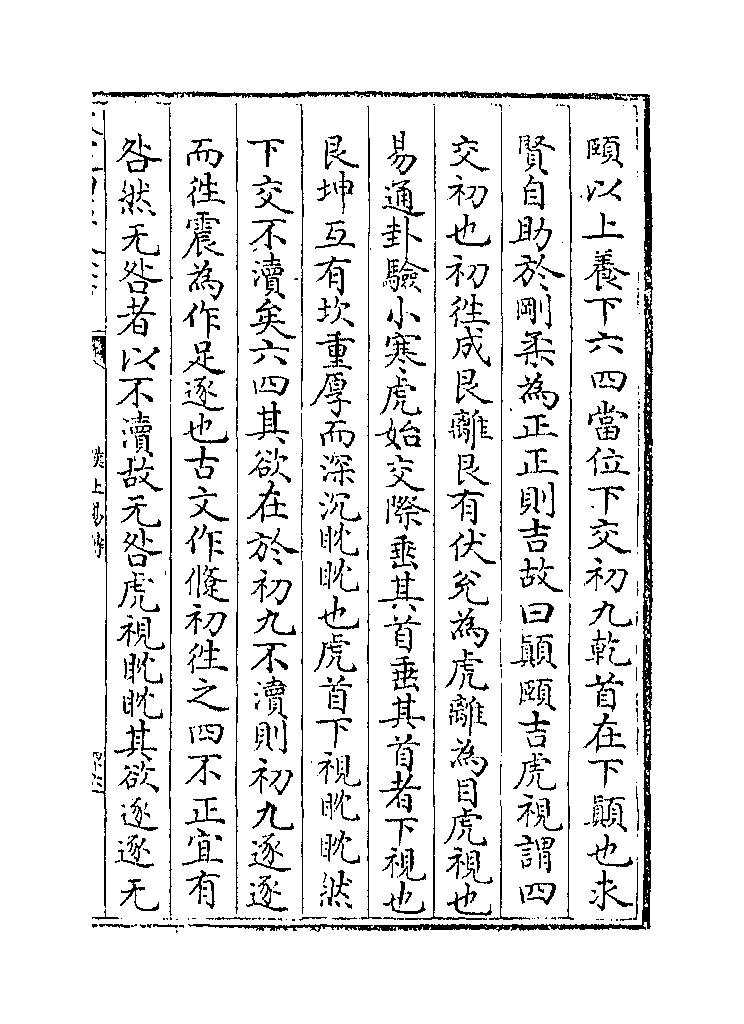 頤以上養下六四當位下交初九乾首在下顛也求
賢自助於剛柔為正正則吉故曰顛頤吉虎視謂四
交初也初徃成艮離艮有伏兌為虎離為目虎視也
易通卦驗小寒虎始交際垂其首垂其首者下視也
艮坤互有坎重厚而深沉眈眈也虎首下視眈眈然
下交不瀆矣六四其欲在於初九不瀆則初九逐逐
而徃震為作足逐也古文作㣙初徃之四不正宜有
咎然无咎者以不瀆故无咎虎視眈眈其欲逐逐无
漢上易傳